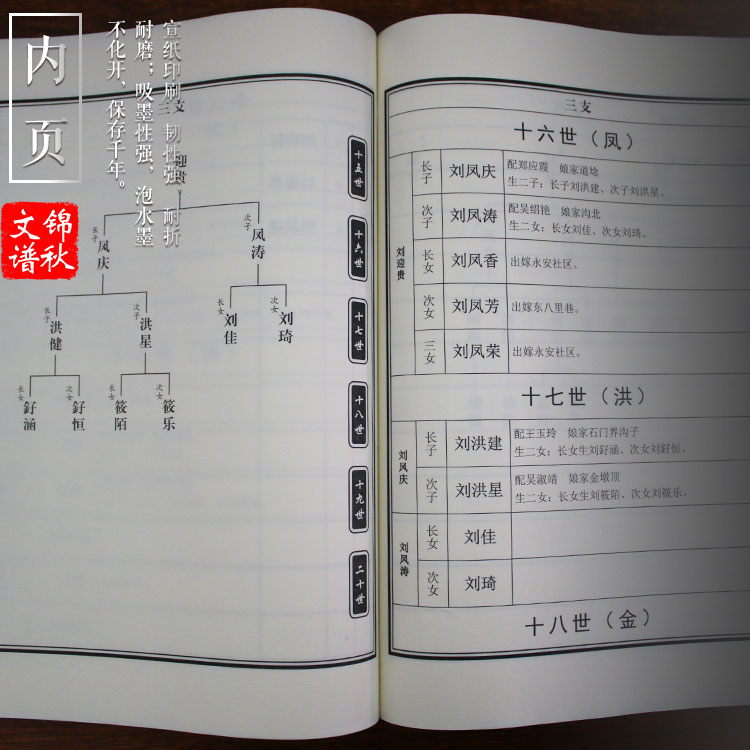 内页
宣纸印刷 韧性强、耐折
耐磨；吸墨性强，泡水墨
不化开，保存千年。
锦秋
文谱
三支
迎贵
长子
凤庆
次子
凤涛
长子
洪健
次子
洪星
长女
刘佳
次女
刘琦
长女
釨涵
次女
釨恒
长女
筱陌
次女
筱乐
十五世
十六世
十七世
十八世
十九世
二十世
三支
十六世（凤）
刘迎贵
长子 刘凤庆 配郑应霞 娘家道埝
生二子：长子刘洪建、次子刘洪星。
次子 刘凤涛 配吴绍艳 娘家沟北
生二女：长女刘佳、次女刘琦。
长女 刘凤香 出嫁永安社区。
次女 刘凤芳 出嫁东八里巷。
三女 刘凤荣 出嫁永安社区。
十七世（洪）
刘凤庆
长子 刘洪建 配王玉玲 娘家石门界沟子
生二女：长女生刘釨涵、次女刘釨恒。
次子 刘洪星 配吴淑靖 娘家金墩顶
生二女：长女生刘筱陌、次女刘筱乐。
刘凤涛
长女 刘佳
次女 刘琦
十八世（金）